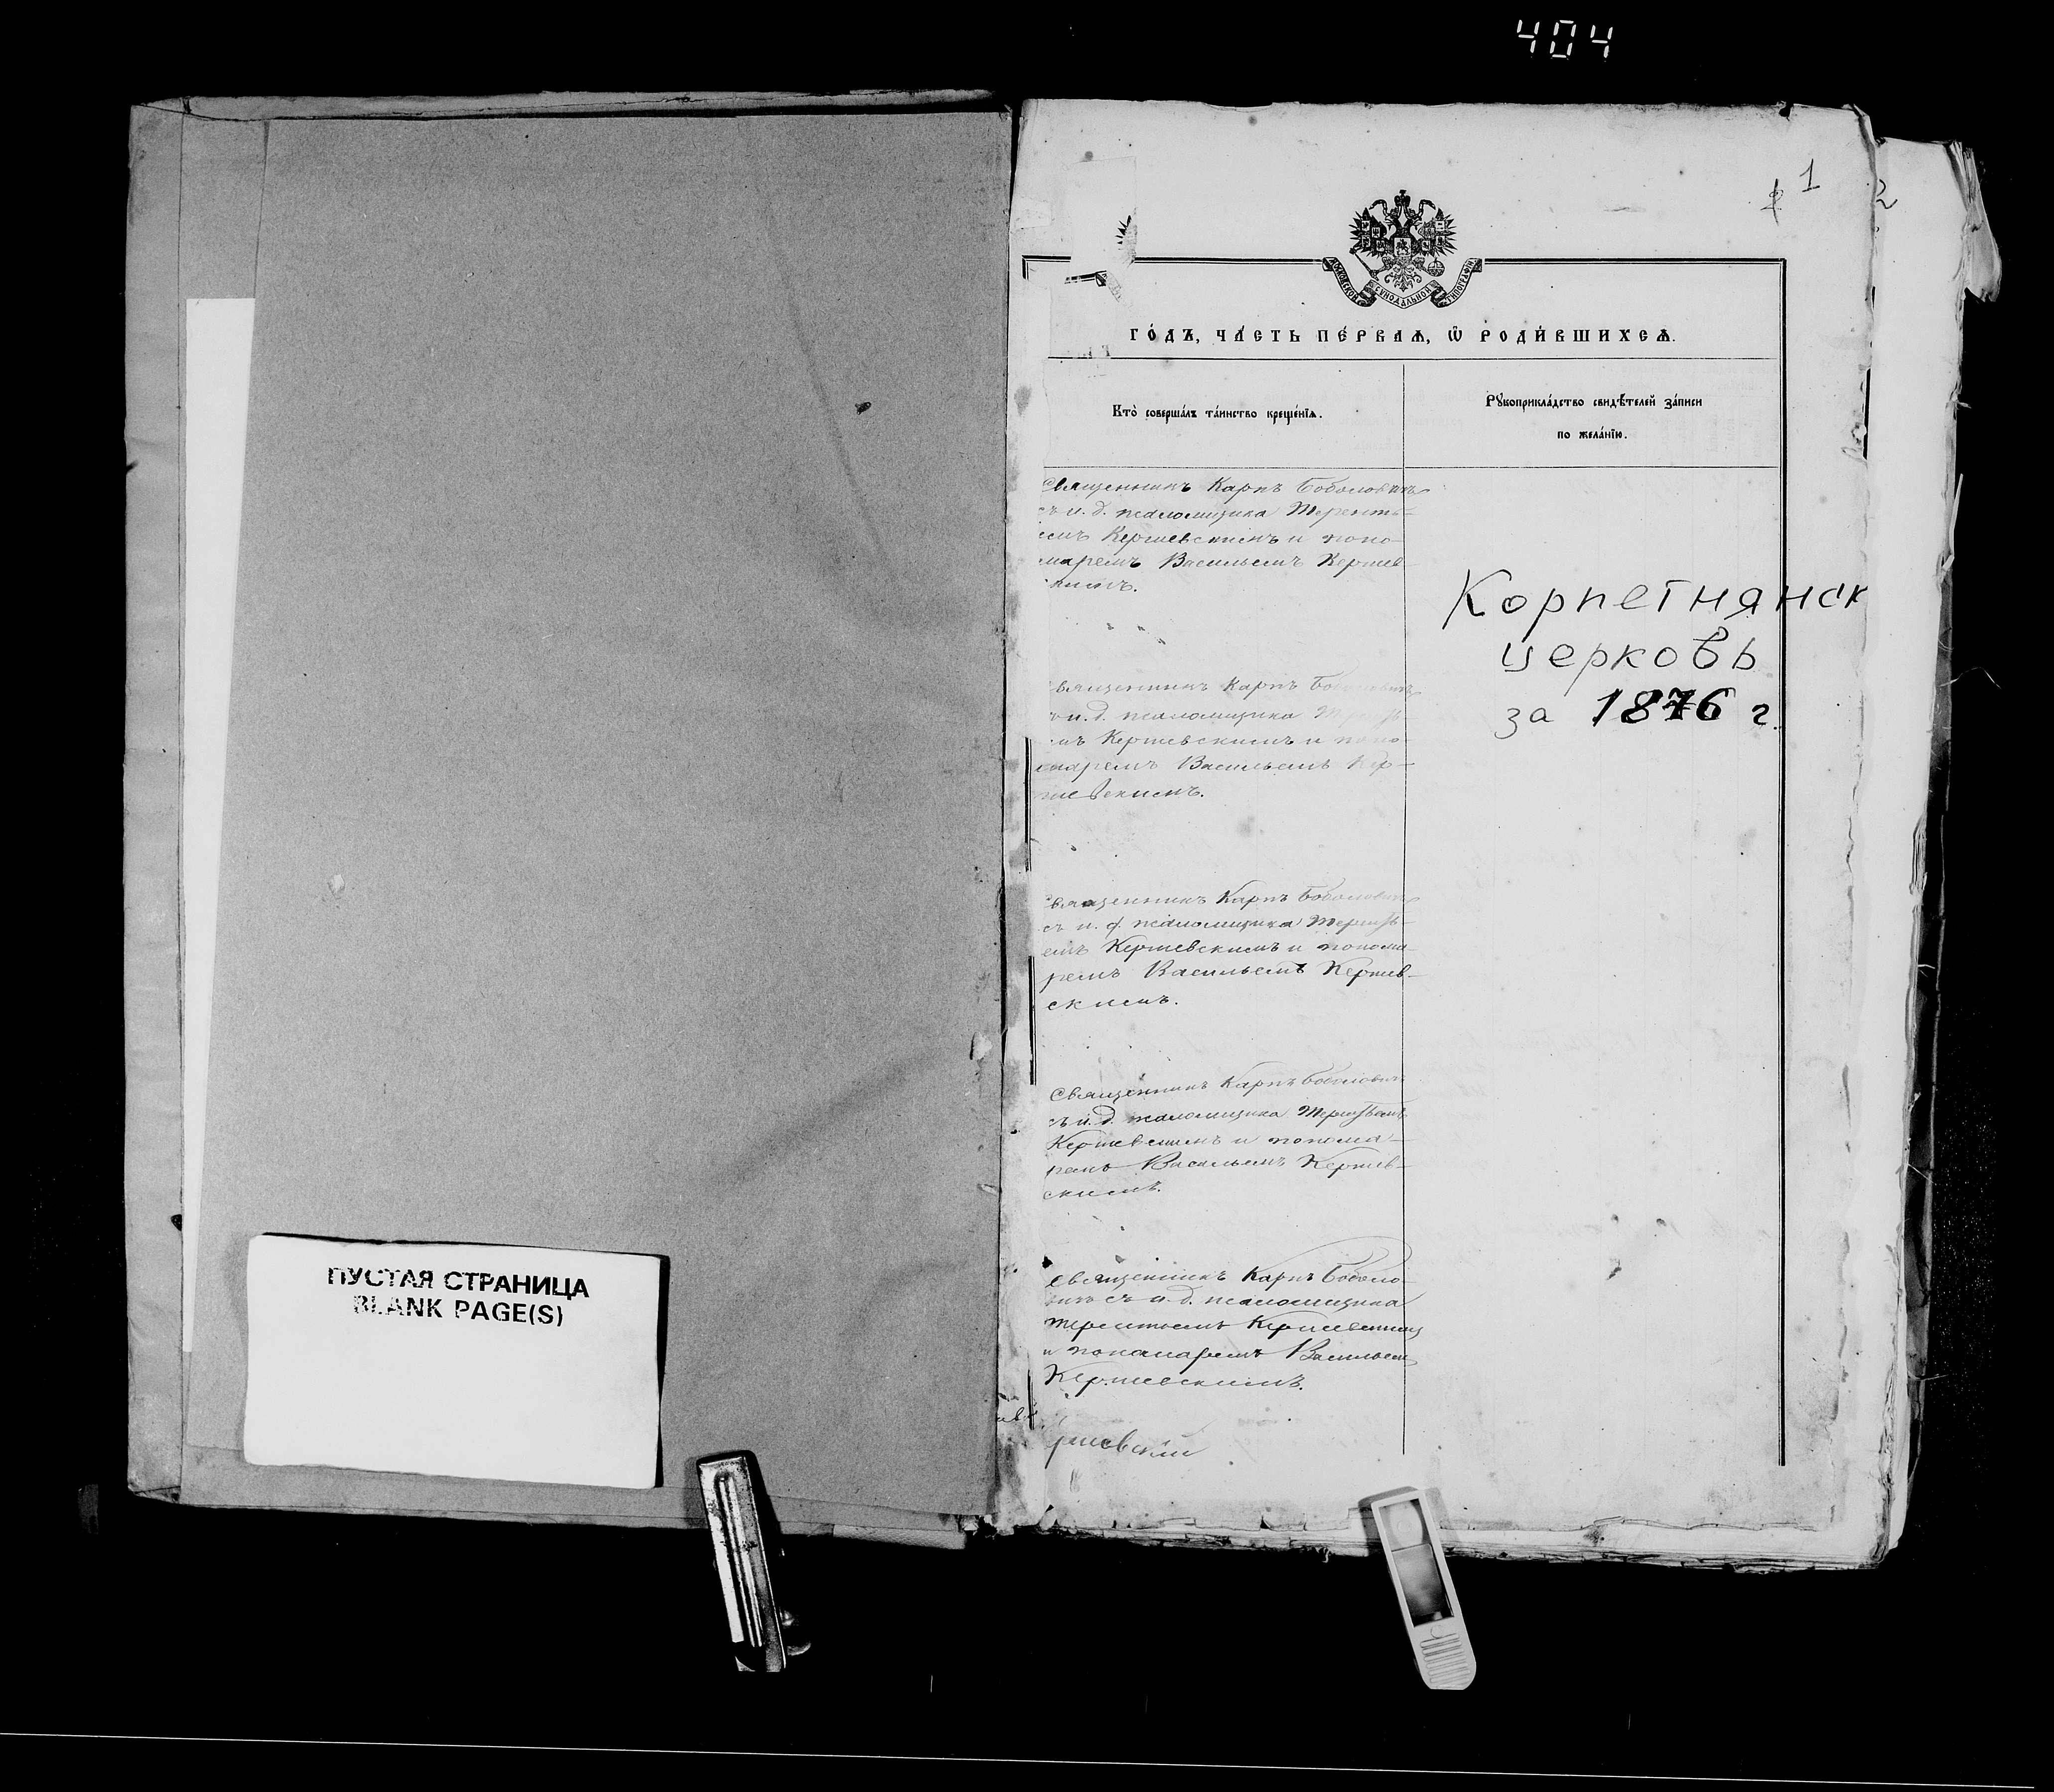 404
1
2
МОСКОВСКОЙ СУНОДАЛЬНОЙ ТИПОГРАФІИ
ГО́ДЪ, ЧА́СТЬ ПЕ́РВАѦ, Ѿ РОДИ́ВШИХСѦ.
Кто̀ соверша́лъ та́инство креще́нїѧ.
Рꙋкоприкла́дство свидѣ́телей за́писи
по жела́нїю.
Священникъ Карпъ Боболовичъ
съ и. д. псаломщика Теренть-
емъ Кержевскимъ и поно-
маремъ Васильемъ Кержев-
скимъ.
Корпетнянск
церковь
за 1876 г.
священникъ Карпъ
съ и. д. псаломщика
емъ Кержевскимъ и поно-
маремъ Васильемъ Кер-
жевскимъ.
священникъ Карпъ Боболовичъ
съ и. д. псаломщика Теренть-
емъ Кержевскимъ и понома-
ремъ Васильемъ Кержев-
скимъ.
Священникъ Карпъ Боболовичъ
съ и. д. псаломщика Терентьемъ
Кержевскимъ и понома-
ремъ Васильемъ Кержев-
скимъ.
священникъ Карпъ Боболо-
вичъ съ и. д. псаломщика
Терентьемъ Кержевскимъ
и пономаремъ Васильемъ
Кержевскимъ.
ржевскій
ПУСТАЯ СТРАНИЦА
BLANK PAGE(S)